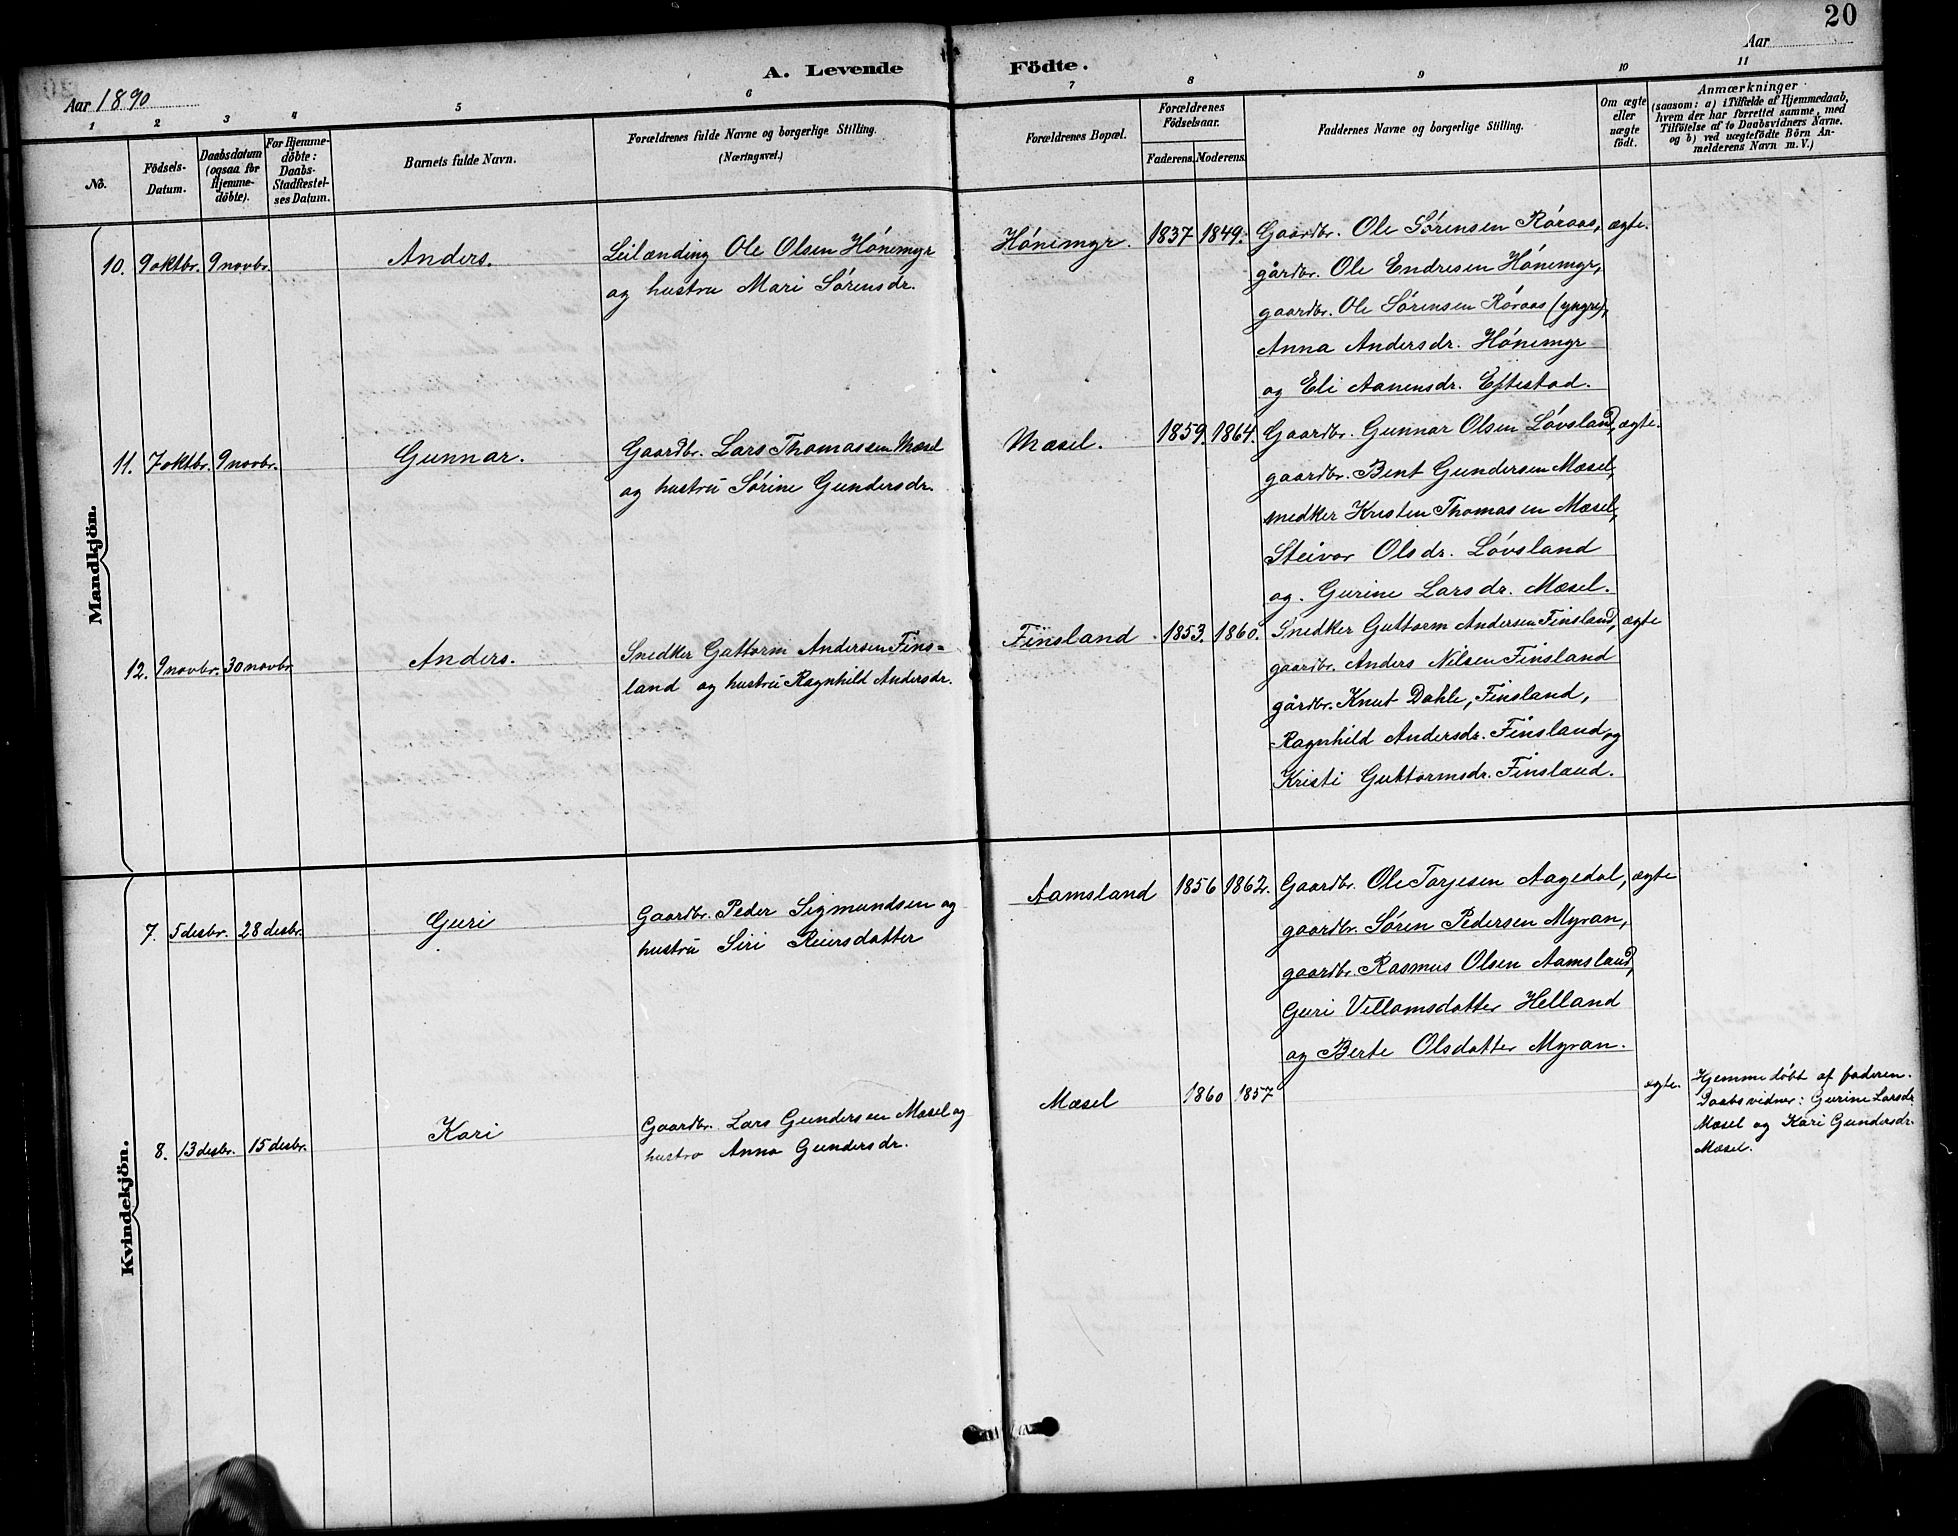 20
A. Levende Födte.
Aar 1890
Aar
1 2 3 4 5 6 7 8 9 10 11
No.
Födsels-
Datum.
Daabsdatum
(ogsaa for
Hjemme-
döbte).
For Hjemme-
döbte:
Daabs-
Stadfæstel-
ses Datum.
Barnets fulde Navn.
Forældrenes fulde Navne og borgerlige Stilling.
(Næringsvei.)
Forældrenes Bopæl.
Forældrenes
Födselsaar.
Faderens. Moderens.
Faddernes Navne og borgerlige Stilling.
Om ægte
eller
uægte
födt.
Anmærkninger
(saasom: a) i Tilfælde af Hjemmedaab,
hvem der har forrettet samme, med
Tilföielse af to Daabsvidners Navne,
og b) ved uægtefödte Börn An-
melderens Navn m. V.)
Mandkjön.
10. 9 oktbr. 9 novbr. Anders.
Leilænding Ole Olsen Hónemyr
og hustru Mari Sórensdr.
Hónemyr. 1837 1849.
Gaardbr. Ole Sórensen Róraas, ægte.
gårdbr. Ole Endresen Hónemyr,
gaardbr. Ole Sórensen Róraas (yngre),
Anna Andersdr. Hónemyr
og Eli Aanensdr. Eftestad.
11. 7 oktbr. 9 novbr. Gunnar.
Gaardbr. Lars Thomassen Mæsel
og hustru Sórine Gundersdr.
Mæsel. 1859. 1864.
Gaardbr. Gunnar Olsen Lóvsland, ægte.
gaardbr. Bent Gundersen Mæsel,
snedker Kristen Thomasen Mæsel,
Steivor Olsdr. Lóvsland
og Gurine Larsdr. Mæsel.
12. 9 novbr. 30 novbr Anders.
Snedker Guttorm Andersen Fins-
land og hustru Ragnhild Andersdr.
Finsland 1853. 1860.
Snedker Guttorm Andersen Finsland, ægte
gaardbr. Anders Nilsen Finsland
gårdbr. Knut Dahle, Finsland,
Ragnhild Andersdr. Finsland og
Kristi Guttormsdr. Finsland.
Kvindekjön.
7. 5 desbr. 28 desbr. Guri
Gaardbr. Peder Sigmundsen og
hustru Siri Reiersdatter
Aamsland 1856 1862.
Gaardbr. Ole Torjesen Aagedal, ægte
gaardbr. Sóren Pedersen Myran,
gaardbr. Rasmus Olsen Aamsland,
Guri Villamsdatter Helland
og Berte Olsdatter Myran.
8. 13 desbr. 15 desbr. Kari
Gaardbr. Lars Gundersen Mæsel og
hustro Anna Gundersdr.
Mæsel 1860 1857
ægte.
Hjemmedóbt af faderen.
Daabsvidner: Gurine Larsdr
Mæsel og Kari Gundersdr.
Mæsel.